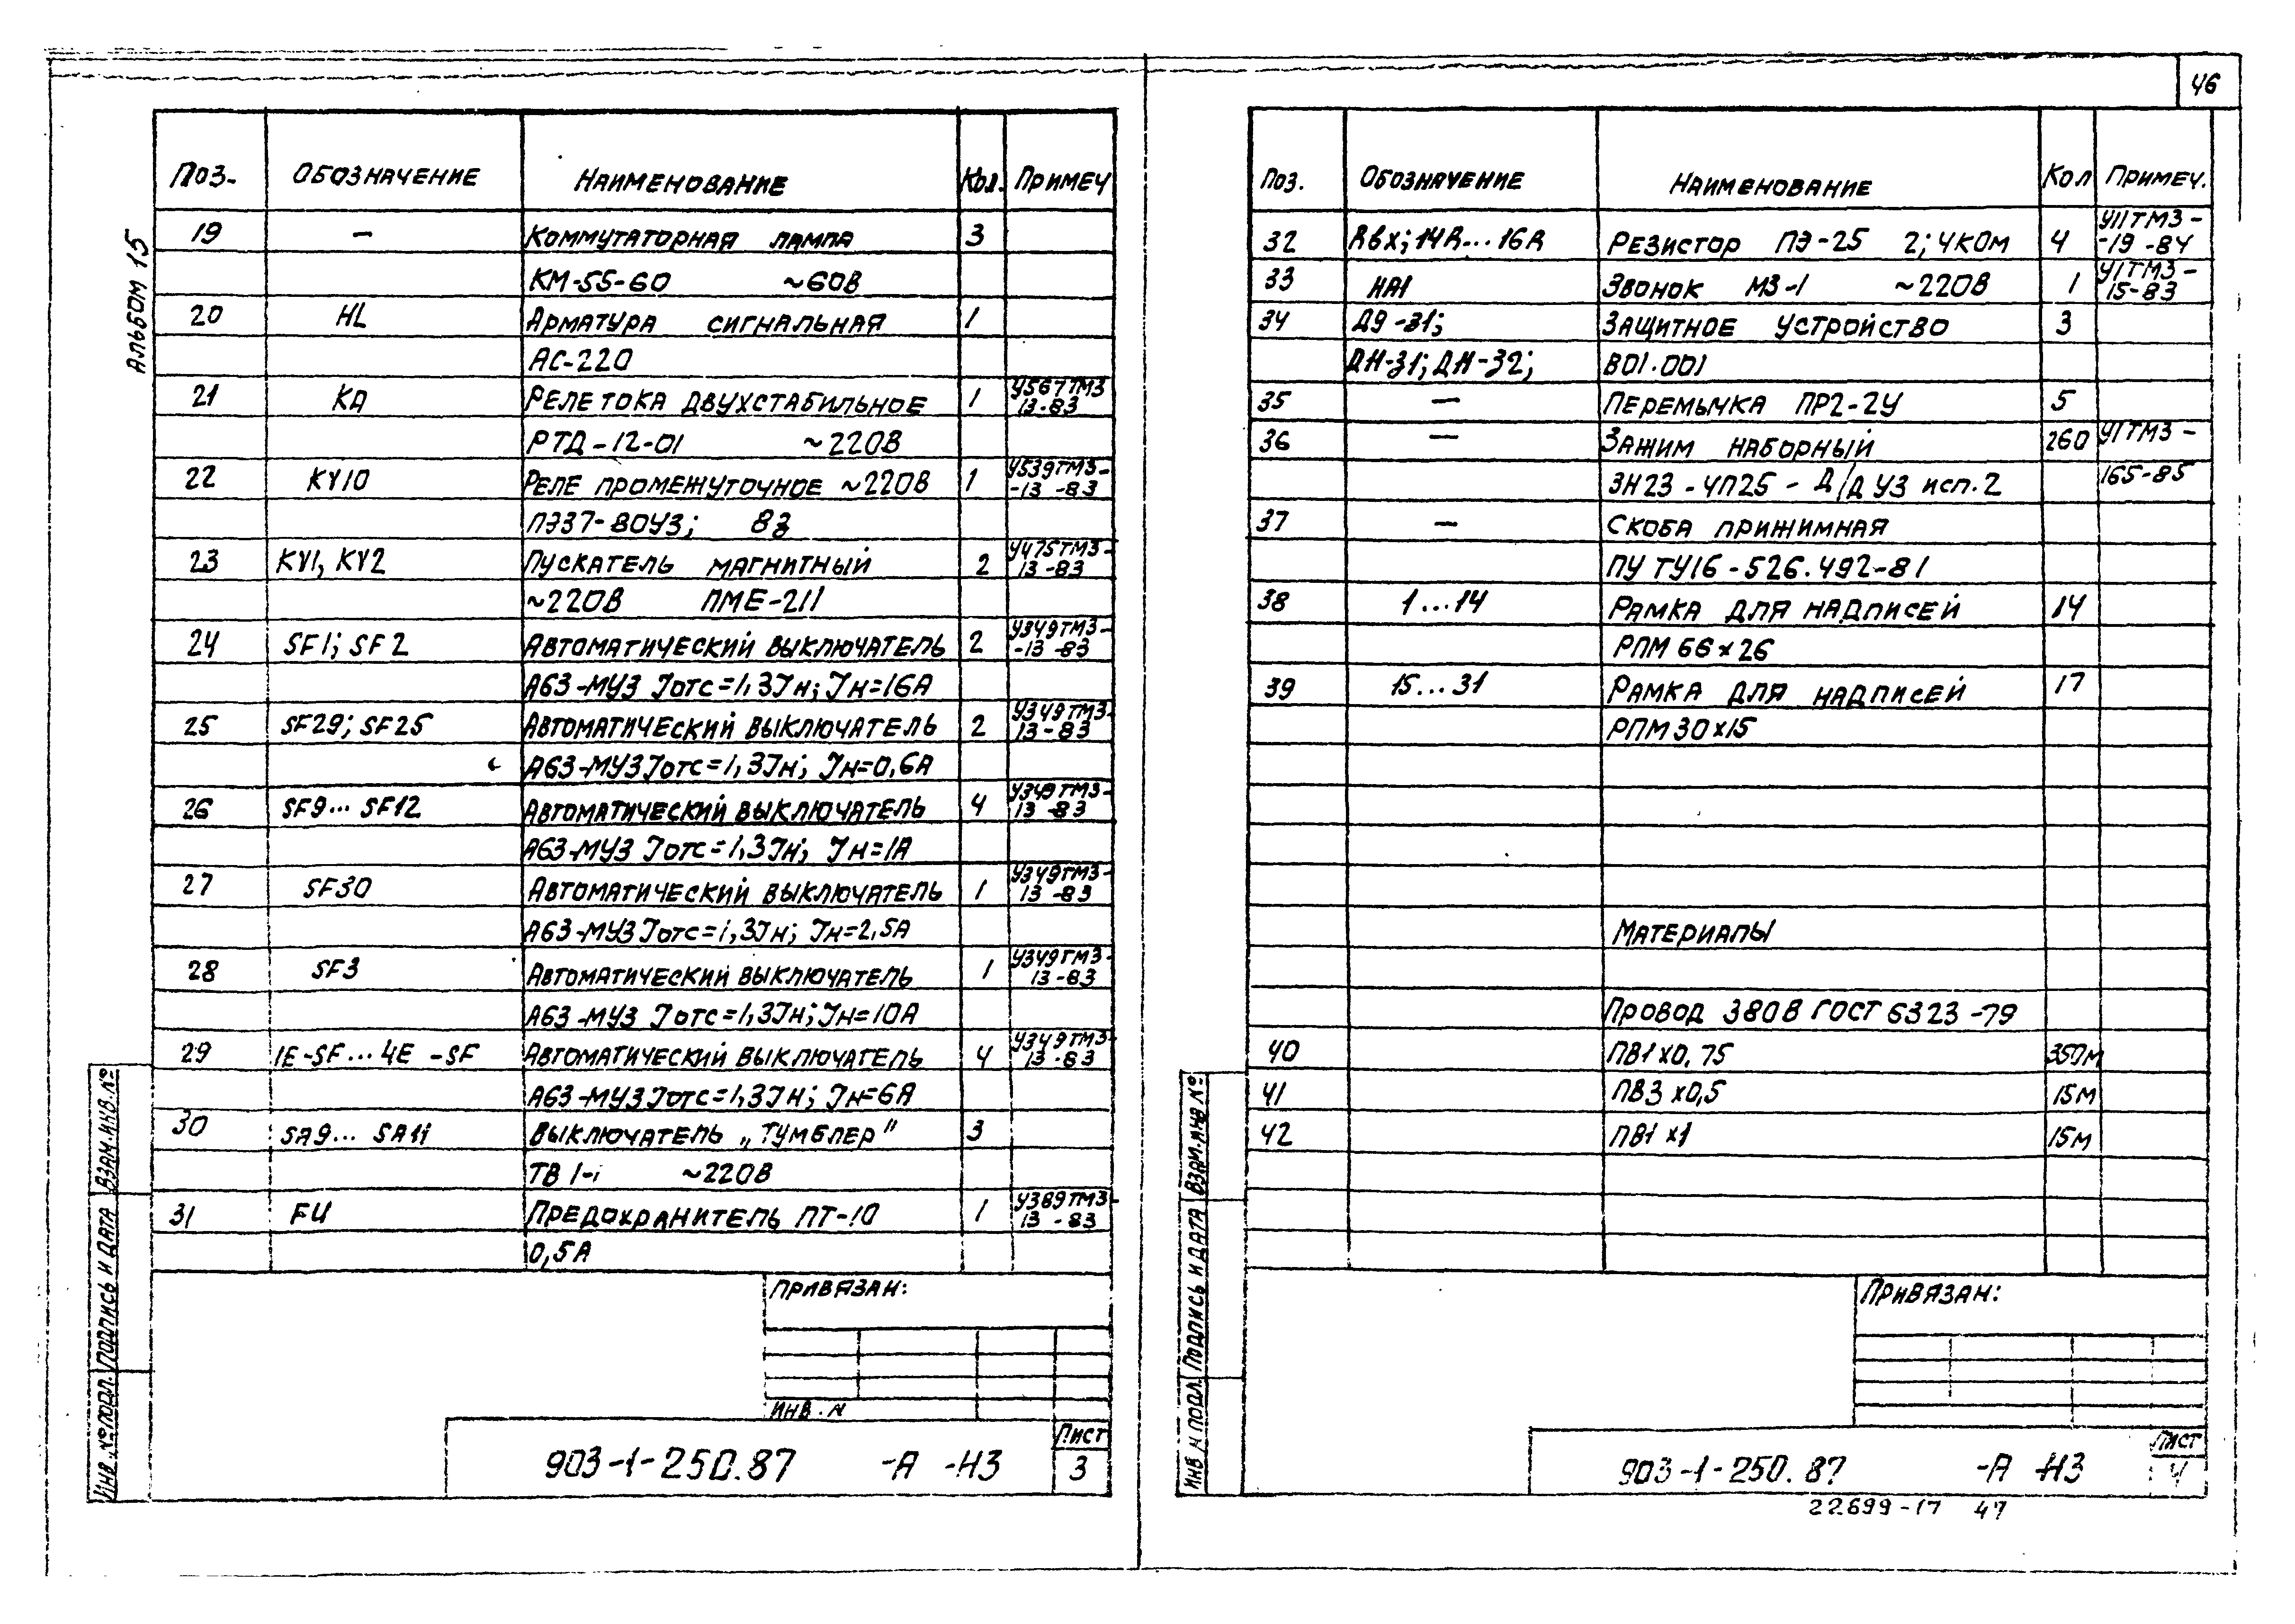 46
Альбом 15
Поз. Обозначение Наименование Кол. Примеч
19 — Коммутаторная лампа 3
КМ-55-60 ~60В
20 HL Арматура сигнальная 1
АС-220
21 КА Реле тока двухстабильное 1 У567ТМ3 13-83
РТД-12-01 ~220В
22 KY10 Реле промежуточное ~220В 1 У539ТМ3--13-83
ПЭ37-80У3; 8з
23 KY1, KY2 Пускатель магнитный 2 У475ТМ3-13-83
~220В ПМЕ-211
24 SF1; SF2 Автоматический выключатель 2 У349ТМ3--13-83
А63-МУ3 Jотс=1,3Jн; Jн=16А
25 SF29; SF25 Автоматический выключатель 2 У349ТМ3-13-83
А63-МУ3 Jотс=1,3Jн; Jн=0,6А
26 SF9... SF12 Автоматический выключатель 4 У349ТМ3-13-83
А63-МУ3 Jотс=1,3Jн; Jн=1А
27 SF30 Автоматический выключатель 1 У349ТМ3-13-83
А63-МУ3 Jотс=1,3Jн; Jн=2,5А
28 SF3 Автоматический выключатель 1 У349ТМ3-13-83
А63-МУ3 Jотс=1,3Jн; Jн=10А
29 1E-SF... 4E-SF Автоматический выключатель 4 У349ТМ3-13-83
А63-МУ3 Jотс=1,3Jн; Jн=6А
30 SA9... SA11 Выключатель „Тумблер" 3
ТВ 1-1 ~220В
31 FU Предохранитель ПТ-10 1 У389ТМ3-13-83
0,5А
Привязан:
Инв. N
903-1-250.87 -А -Н3
Лист
3
Инв. № подл. Подпись и дата Взам. инв. №
Поз. Обозначение Наименование Кол Примеч.
32 Rвх; 14R...16R Резистор ПЭ-25 2;4кОм 4 У11ТМ3--19-84
33 НА1 Звонок МЗ-1 ~220В 1 У1ТМ3-15-83
34 Д9-31; Защитное устройство 3
ДН-31; ДН-32; В01.001
35 — Перемычка ПР2-2У 5
36 — Зажим наборный 260 У1ТМ3-
ЗН23-4П25-Д/Д У3 исп.2 165-85
37 — Скоба прижимная
ПУ ТУ16-526.492-81
38 1...14 Рамка для надписей 14
РПМ 66х26
39 15...31 Рамка для надписей 17
РПМ 30х15
Материалы
Провод 380В ГОСТ 6323-79
40 ПВ1х0,75 350м
41 ПВ3х0,5 15м
42 ПВ1х1 15м
Привязан:
903-1-250.87 -А -Н3
Лист
4
Инв. N подл. Подпись и дата Взам. инв №
22699-17 47